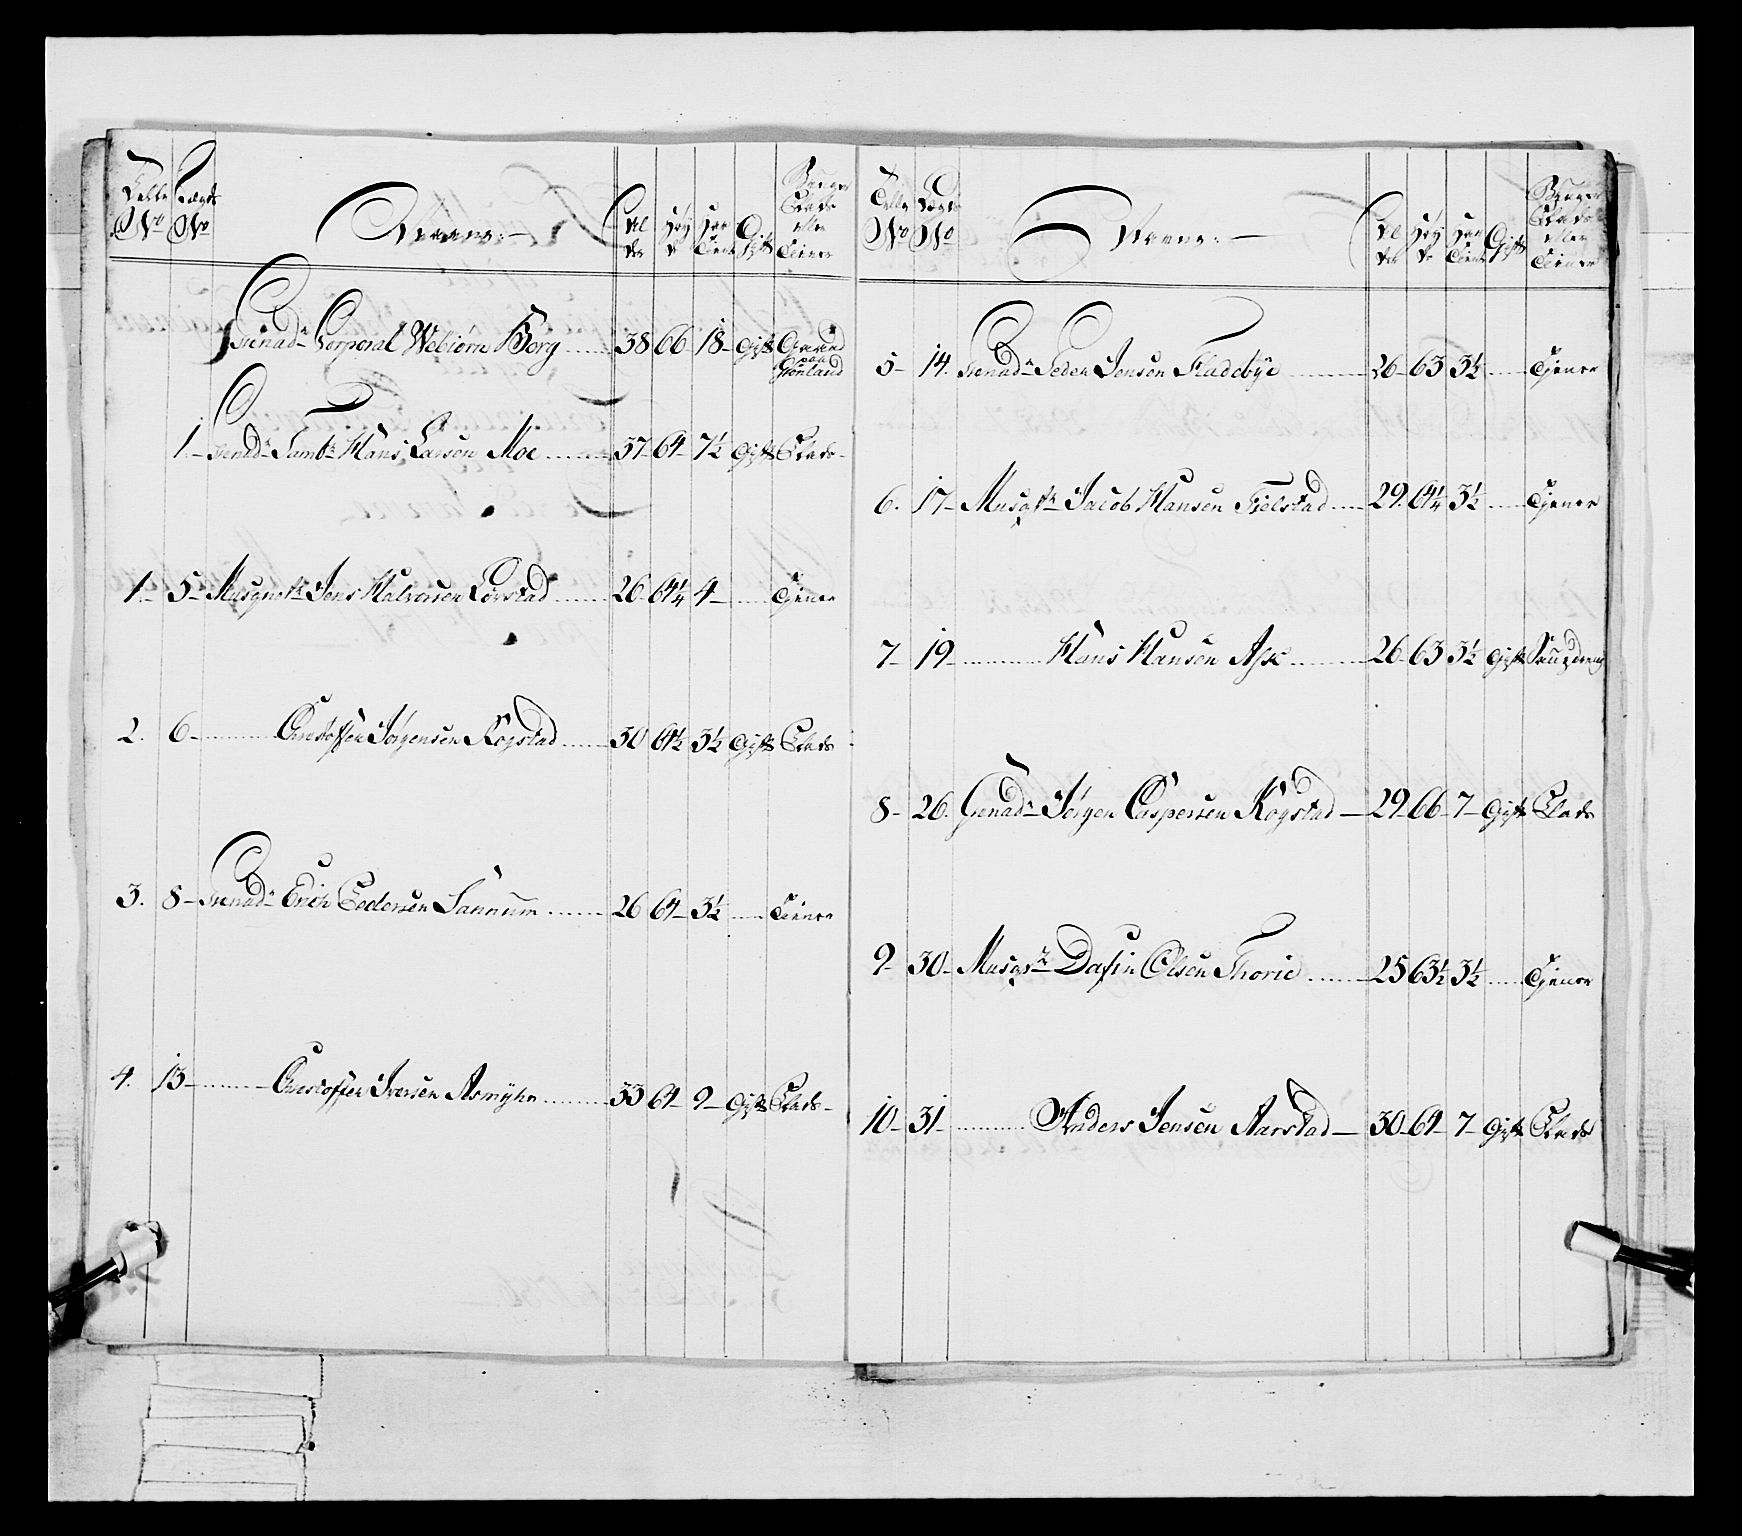 Tælle No Lægds No Navne: Al der Høy de Har Tient Gift Bruger Plads eller Tiener
Grenad:r Corporal Webiørn Berg 38 66 18 Gift Grund paa Grønland
1 Grenad:r Tamb:r Hans Larsen Moe 37 64 7½ Gift Plads
1 5 Musquet:r Jens Halvorsen Lørstad 26 64¼ 4 Tiener
2. 6 Christoffer Jørgensen Rogstad 30 64½ 3½ Gift Plads
3. 8 Grenad:r Erich Pedersen Sannum 26 64 3½ Tiener
4. 13 Christoffer Iversen Asmyhr 33 64 9 Gift Plads
Tælle No Lægds No Navne: Al der Høy de Har Tient Gift Bruger Plads eller Tiener
5 14. Grenad:r Peder Jensen Fladebye 26 63 3½ Tjener
6. 17 Musq:tr Jacob Hansen Fielstad 29. 64¼ 3½ Tjener
7 19 Hans Hansen Ask 26 63 3½ Gift
8 26. Grenad:r Jørgen Caspersen Rogstad 29 66 7 Gift Plads
9 30 Musq:tr Dafin Olsen Thorie 25 63½ 3½ Tjener
10 31 Anders Jensen Aarstad 30 64 7 Gift Plads